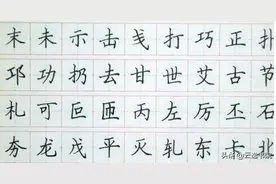 末 未 示 击 戋 打 巧 正 扑
邛 功 扔 去 甘 世 艾 古 节
札 可 叵 匝 丙 左 厉 丕 石
夯 龙 戊 平 灭 轧 东 卡 北